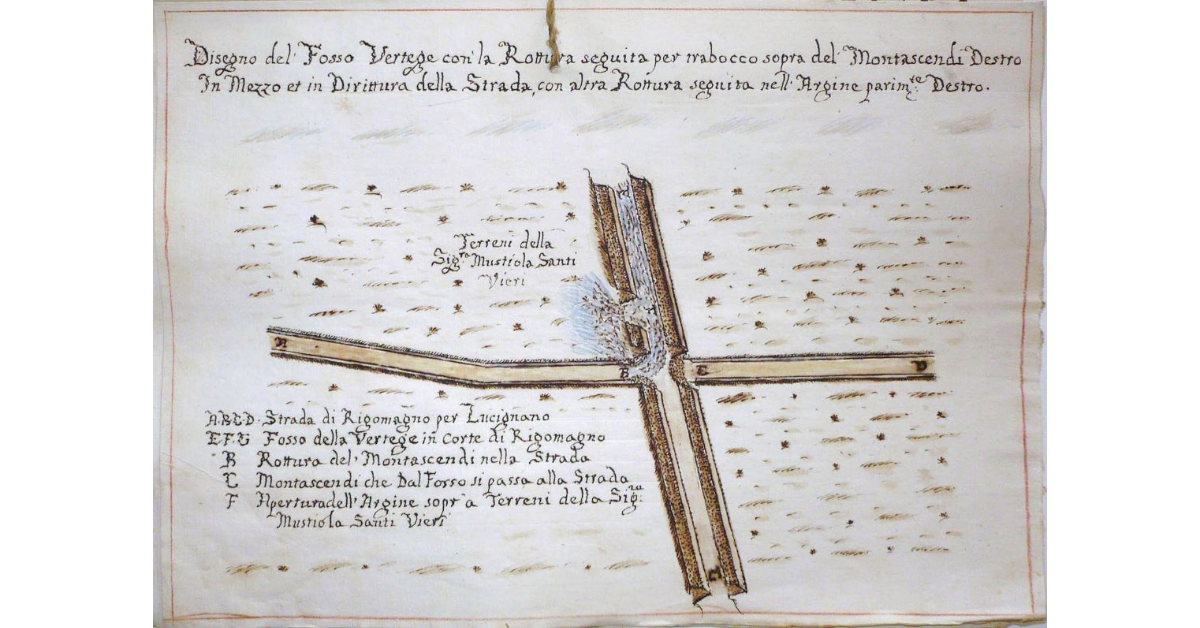 Disegno del' Fosso Vertege con la Rottura seguita per trabocco sopra del' Montascendi Destro
In Mezzo et in Dirittura della Strada, con altra Rottura seguita nell' Argine parim.te Destro.
Terreni della
Sig.ra Mustiola Santi
Vieri
A B C D
A.B.C.D. Strada di Rigomagno per Lucignano
E.F.G Fosso della Vertege in Corte di Rigomagno
B Rottura del' Montascendi nella Strada
C Montascendi che Dal Fosso si passa alla Strada
F Apertura dell' Argine sopr'a Terreni della Sig.ra
Mustiola Santi Vieri
G